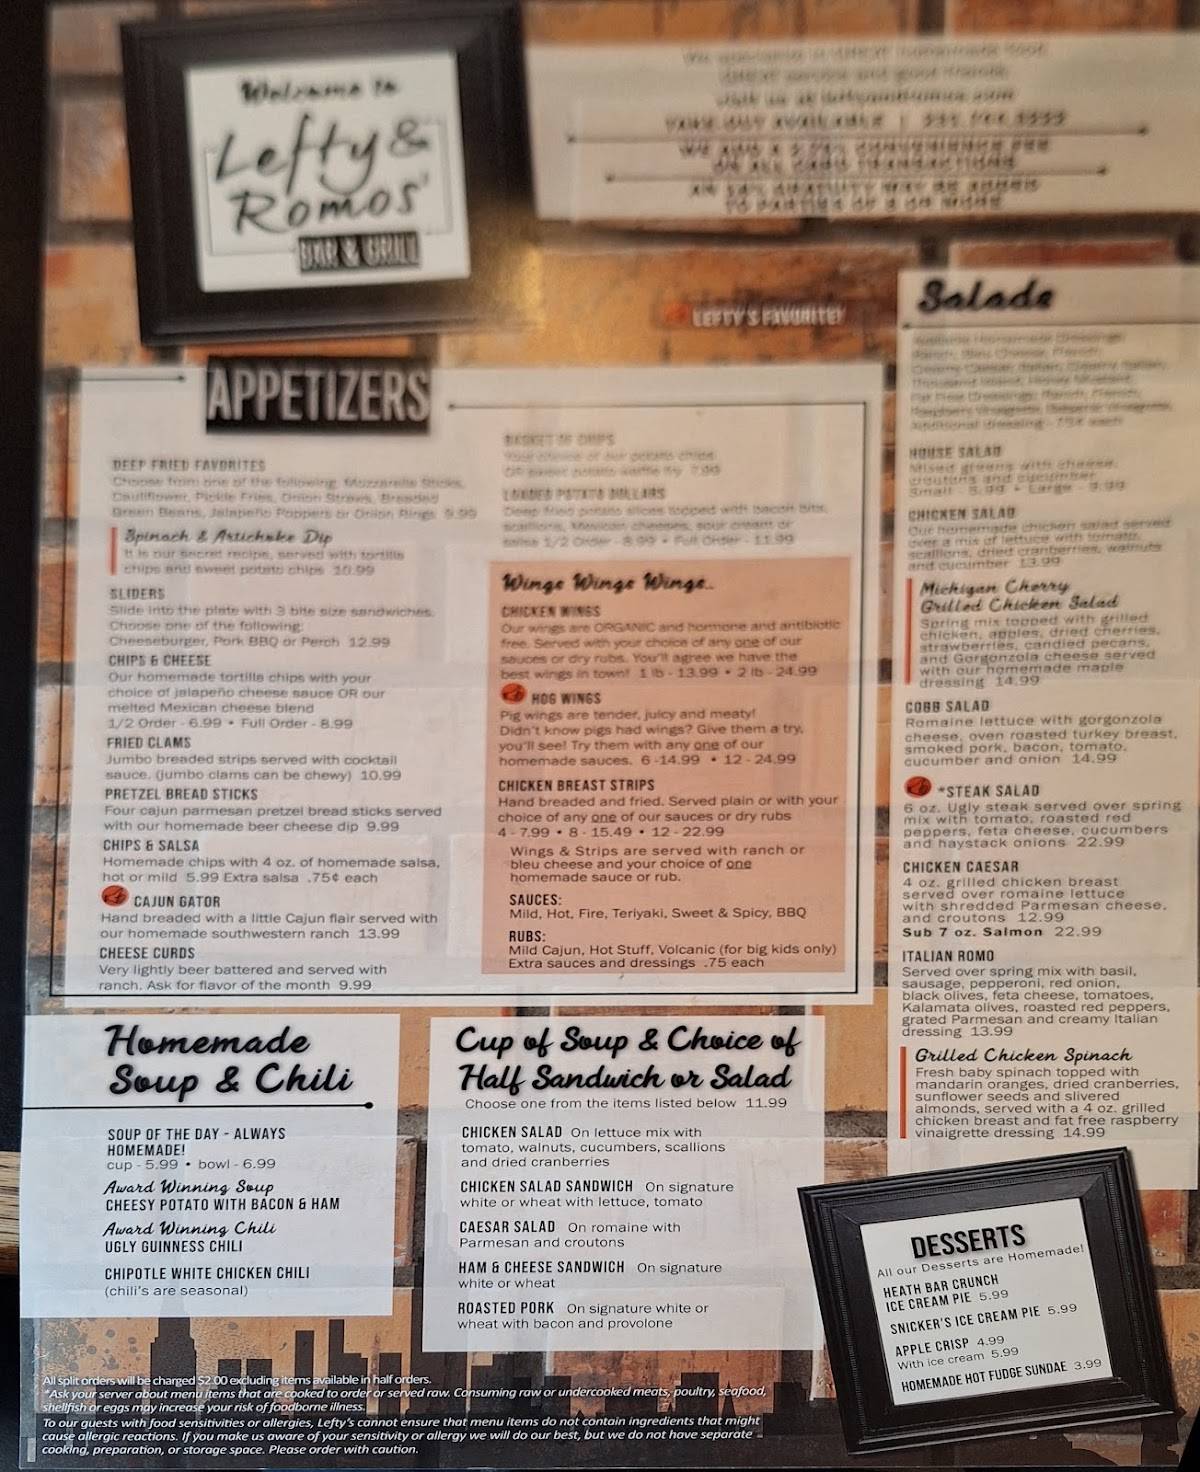 Welcome to
Lefty &
Romos'
BAR & GRILL
TAKE OUT AVAILABLE
ON ALL CARD TRANSACTIONS
TO PARTIES OF 8 OR MORE
LEFTY'S FAVORITE!
APPETIZERS
DEEP FRIED FAVORITES
Choose from one of the following: Mozzarella Sticks,
Cauliflower, Pickle Fries, Onion Straws, Breaded
Green Beans, Jalapeño Poppers or Onion Rings 9.99
Spinach & Artichoke Dip
It is our secret recipe, served with tortilla
chips and sweet potato chips 10.99
SLIDERS
Slide into the plate with 3 bite size sandwiches.
Choose one of the following:
Cheeseburger, Pork BBQ or Perch 12.99
CHIPS & CHEESE
Our homemade tortilla chips with your
choice of jalapeño cheese sauce OR our
melted Mexican cheese blend
1/2 Order - 6.99 • Full Order - 8.99
FRIED CLAMS
Jumbo breaded strips served with cocktail
sauce. (jumbo clams can be chewy) 10.99
PRETZEL BREAD STICKS
Four cajun parmesan pretzel bread sticks served
with our homemade beer cheese dip 9.99
CHIPS & SALSA
Homemade chips with 4 oz. of homemade salsa,
hot or mild 5.99 Extra salsa .75¢ each
CAJUN GATOR
Hand breaded with a little Cajun flair served with
our homemade southwestern ranch 13.99
CHEESE CURDS
Very lightly beer battered and served with
ranch. Ask for flavor of the month 9.99
BASKET OF CHIPS
Your choice of our potato chips
OR sweet potato waffle fry 7.99
LOADED POTATO DOLLARS
Deep fried potato slices topped with bacon bits,
scallions, Mexican cheeses, sour cream or
salsa 1/2 Order - 8.99 • Full Order - 11.99
Wings Wings Wings..
CHICKEN WINGS
Our wings are ORGANIC and hormone and antibiotic
free. Served with your choice of any one of our
sauces or dry rubs. You'll agree we have the
best wings in town! 1 lb - 13.99 • 2 lb - 24.99
HOG WINGS
Pig wings are tender, juicy and meaty!
Didn't know pigs had wings? Give them a try,
you'll see! Try them with any one of our
homemade sauces. 6 -14.99 • 12 - 24.99
CHICKEN BREAST STRIPS
Hand breaded and fried. Served plain or with your
choice of any one of our sauces or dry rubs
4 - 7.99 • 8 - 15.49 • 12 - 22.99
Wings & Strips are served with ranch or
bleu cheese and your choice of one
homemade sauce or rub.
SAUCES:
Mild, Hot, Fire, Teriyaki, Sweet & Spicy, BBQ
RUBS:
Mild Cajun, Hot Stuff, Volcanic (for big kids only)
Extra sauces and dressings .75 each
Salads
Additional dressing - 75¢ each
HOUSE SALAD
Mixed greens with cheese,
croutons and cucumber
Small - 5.99 • Large - 9.99
CHICKEN SALAD
Our homemade chicken salad served
over a mix of lettuce with tomato,
scallions, dried cranberries, walnuts
and cucumber 13.99
Michigan Cherry
Grilled Chicken Salad
Spring mix topped with grilled
chicken, apples, dried cherries,
strawberries, candied pecans,
and Gorgonzola cheese served
with our homemade maple
dressing 14.99
COBB SALAD
Romaine lettuce with gorgonzola
cheese, oven roasted turkey breast,
smoked pork, bacon, tomato,
cucumber and onion 14.99
*STEAK SALAD
6 oz. Ugly steak served over spring
mix with tomato, roasted red
peppers, feta cheese, cucumbers
and haystack onions 22.99
CHICKEN CAESAR
4 oz. grilled chicken breast
served over romaine lettuce
with shredded Parmesan cheese,
and croutons 12.99
Sub 7 oz. Salmon 22.99
ITALIAN ROMO
Served over spring mix with basil,
sausage, pepperoni, red onion,
black olives, feta cheese, tomatoes,
Kalamata olives, roasted red peppers,
grated Parmesan and creamy Italian
dressing 13.99
Grilled Chicken Spinach
Fresh baby spinach topped with
mandarin oranges, dried cranberries,
sunflower seeds and slivered
almonds, served with a 4 oz. grilled
chicken breast and fat free raspberry
vinaigrette dressing 14.99
Homemade
Soup & Chili
SOUP OF THE DAY - ALWAYS
HOMEMADE!
cup - 5.99 • bowl - 6.99
Award Winning Soup
CHEESY POTATO WITH BACON & HAM
Award Winning Chili
UGLY GUINNESS CHILI
CHIPOTLE WHITE CHICKEN CHILI
(chili's are seasonal)
Cup of Soup & Choice of
Half Sandwich or Salad
Choose one from the items listed below 11.99
CHICKEN SALAD On lettuce mix with
tomato, walnuts, cucumbers, scallions
and dried cranberries
CHICKEN SALAD SANDWICH On signature
white or wheat with lettuce, tomato
CAESAR SALAD On romaine with
Parmesan and croutons
HAM & CHEESE SANDWICH On signature
white or wheat
ROASTED PORK On signature white or
wheat with bacon and provolone
DESSERTS
All our Desserts are Homemade!
HEATH BAR CRUNCH
ICE CREAM PIE 5.99
SNICKER'S ICE CREAM PIE 5.99
APPLE CRISP 4.99
With ice cream 5.99
HOMEMADE HOT FUDGE SUNDAE 3.99
All split orders will be charged $2.00 excluding items available in half orders.
*Ask your server about menu items that are cooked to order or served raw. Consuming raw or undercooked meats, poultry, seafood,
shellfish or eggs may increase your risk of foodborne illness.
To our guests with food sensitivities or allergies, Lefty's cannot ensure that menu items do not contain ingredients that might
cause allergic reactions. If you make us aware of your sensitivity or allergy we will do our best, but we do not have separate
cooking, preparation, or storage space. Please order with caution.